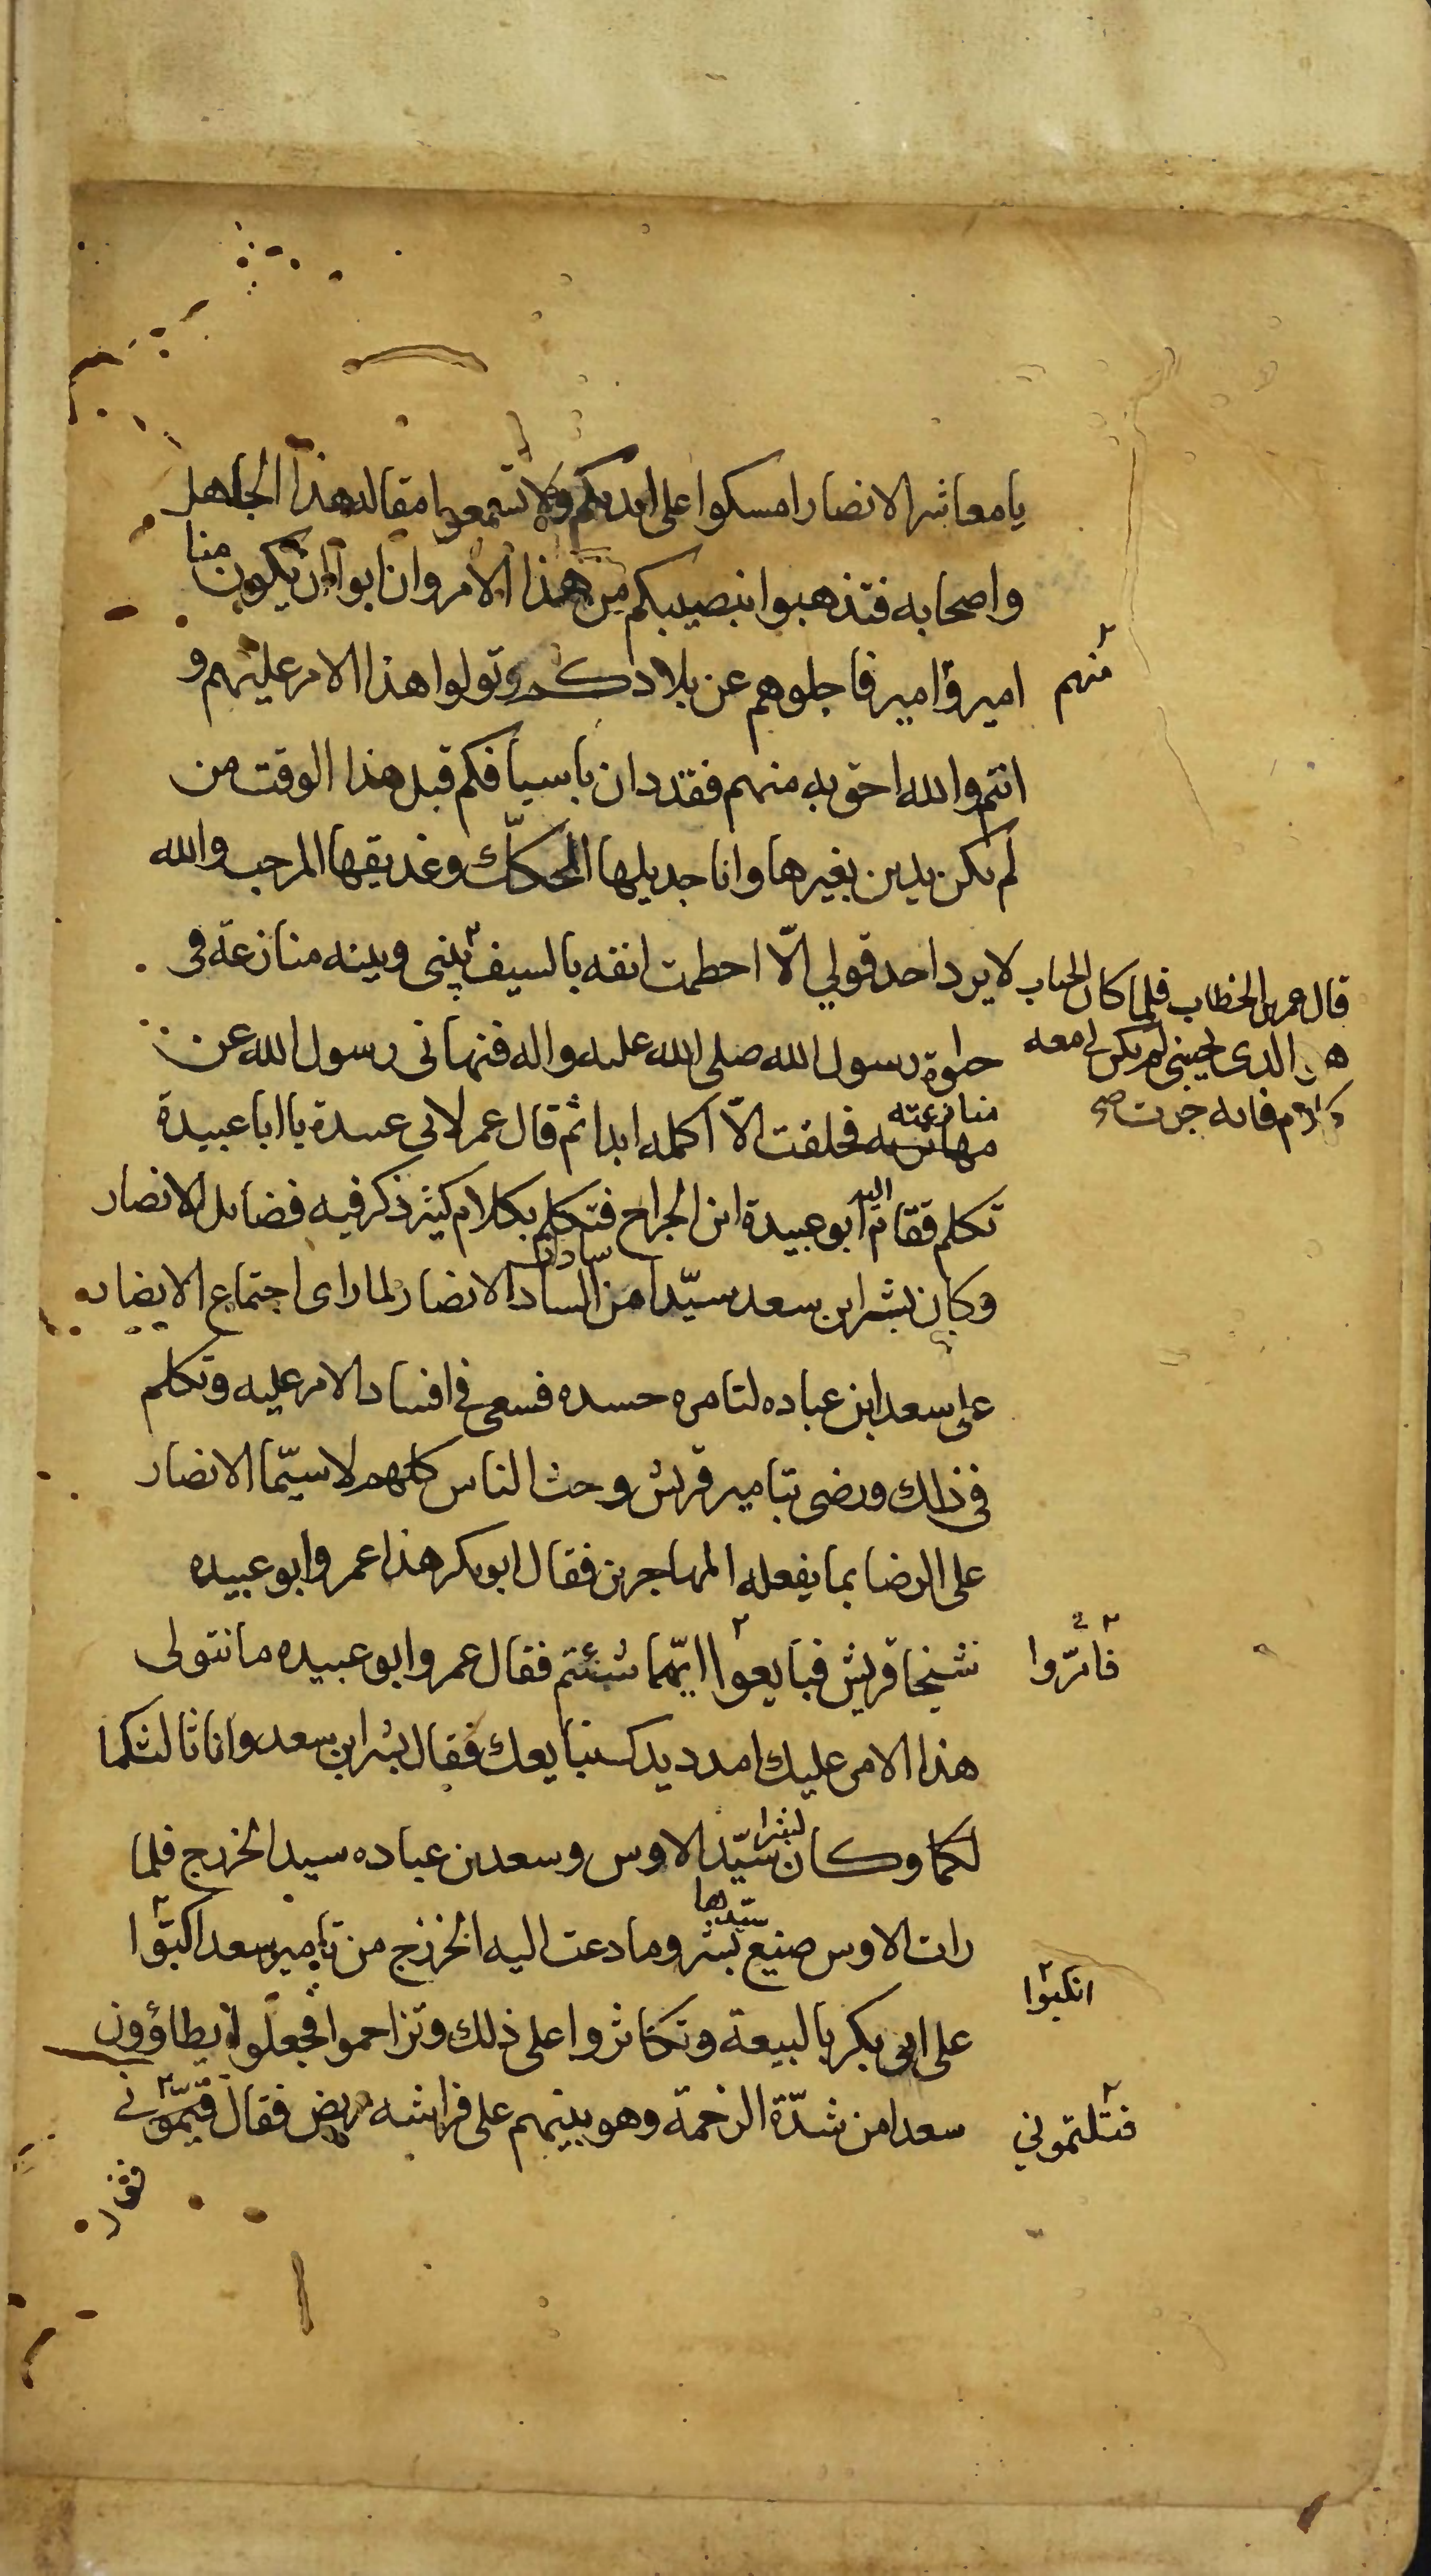 يا معاشر الانصار امسكوا على ايديكم ولا تسمعوا مقاله هذا الجاهل
واصحابه فتذهبوا بنصيبكم من هذا الامر وان ابوا ان تكون منا
امير وامير فاجلوهم عن بلادكم وتولوا هذا الامر عليهم و
منهم
انتم والله احق به منهم فقد دان باسيافكم قبل هذا الوقت من
لم يكن يدين بغيرها وانا جديلها المحكّك وغديقها المرجب والله
لا يرد احد قولي الّا احطمت انفه بالسيف بيني وبينه منازعة في
قال عمر بن الخطاب فلما كان الحباب
هو الذي يجيبني لم يكن لي معه
كلام فانه جرت صح
حلوة رسول الله صلى الله عليه واله فنهاني رسول الله عن
منازعته
مهاترته فحلفت الّا اكلمه ابدا ثم قال عمر لابي عبيدة يا ابا عبيدة
تكلم فقام اليه ابو عبيدة ابن الجراح فتكلم بكلام كثير ذكر فيه فضايل الانصار
سادات
وكان بشر ابن سعد سيّدا من السادا الانصار لما راى اجتماع الانصار
على سعد ابن عباده لتامره حسده فسعى في افساد الامر عليه وتكلم
في ذلك ورضى بتامير قريش وحث الناس كلهم لا سيّما الانصار
على الرضا بما يفعله المهاجرين فقال ابو بكر هذا عمر وابو عبيده
شيخا قريش فبايعوا ايّهما شئتم فقال عمر وابو عبيده ما نتولى
هذا الامر عليك امدد يدك نبايعك فقال بشر ابن سعد وانا ثالثكما
لكما وكان بشرا سيّد الاوس وسعد بن عباده سيد الخزرج فلما
رات الاوس صنيع سيّدها بشر وما دعت اليه الخزرج من تامير سعد اكبّوا
انكبوا
على ابي بكر بالبيعة وتكاثروا على ذلك وتزاحموا فجعلوا يطاؤون
سعدا من شدّة الزحمة وهو بينهم على فراشه مريض فقال
قتلتموني